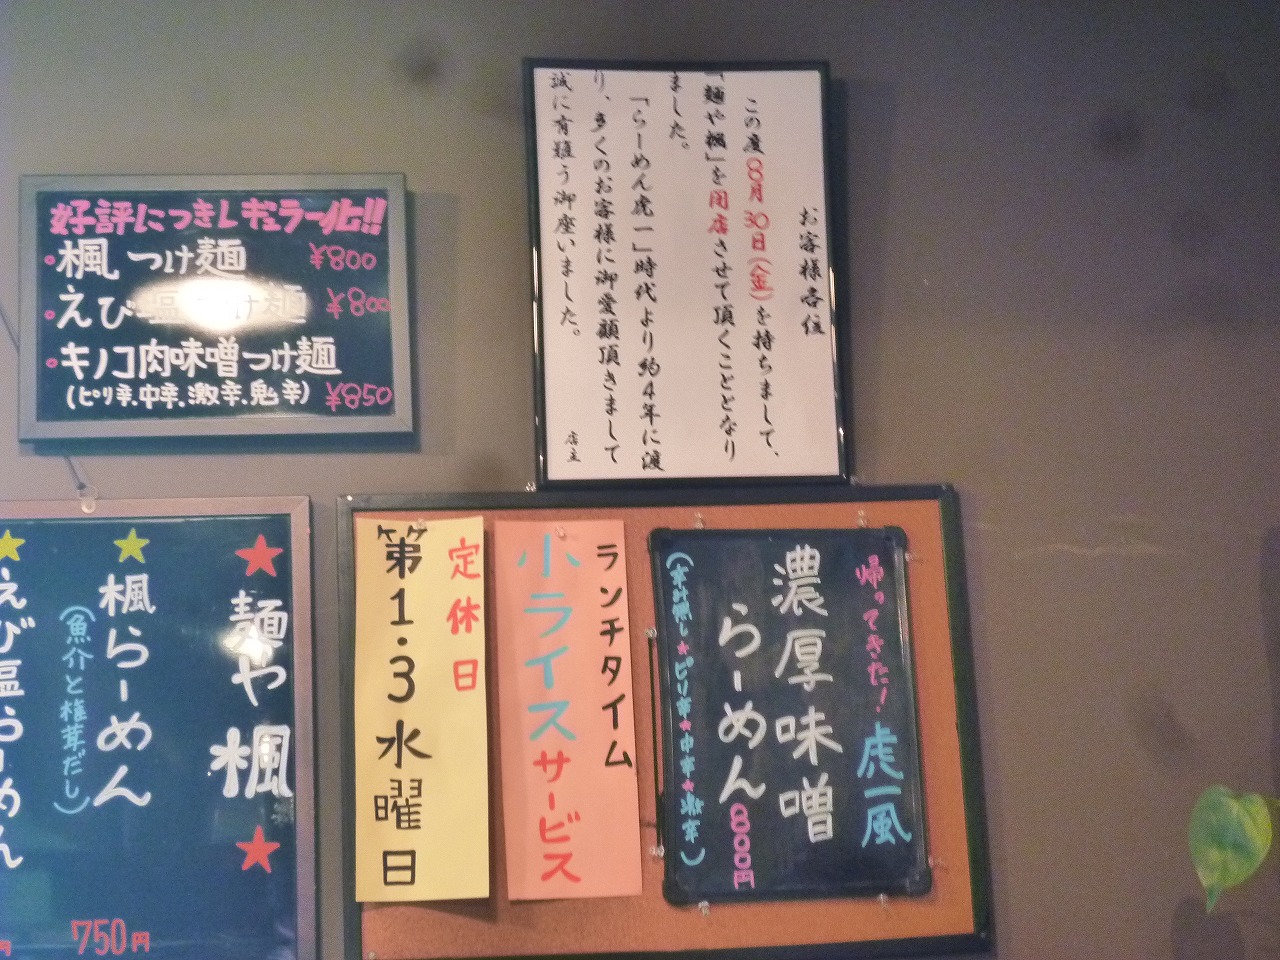 お客様各位
この度8月30日(金)を持ちまして、
「麺や楓」を閉店させて頂くことどなり
ました。
「らーめん虎一」時代より約4年に渡
り、多くのお客様に御愛顧頂きまして
誠に有難う御座いました。
店主
好評につきレギュラー化!!
・楓つけ麺 ¥800
・えび塩つけ麺 ¥800
・キノコ肉味噌つけ麺
(ピリ辛、中辛、激辛、鬼辛) ¥850
★麺や楓★
★楓らーめん
(魚介と椎茸だし)
750円
★えび塩らーめん
円
帰ってきた!虎一風
濃厚味噌
らーめん800円
(辛み無し★ピリ辛★中辛★激辛)
ランチタイム
小ライスサービス
定休日
第1・3水曜日